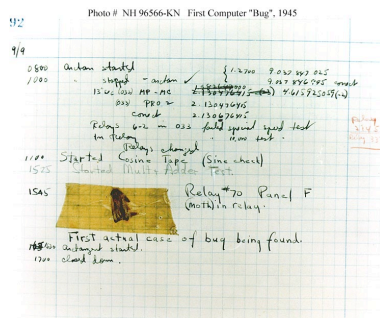 Photo # NH 96566-KN First Computer "Bug", 1945
92
9/9
0800 Antan started
1000 " stopped - antan ✓ { 1.2700 9.037 847 025
9.037 846 995 correct
13"uc (032) MP-MC 2.130476415 4.615925059(-2)
(033) PRO 2 2.130476415
correct 2.130676415
Relays 6-2 in 033 failed special speed test
in Relay " 10.000 test.
Relays changed
1100 Started Cosine Tape (Sine check)
1525 Started Multy Adder Test.
1545 Relay #70 Panel F
(moth) in relay.
First actual case of bug being found.
1630 antangent started.
1700 closed down.